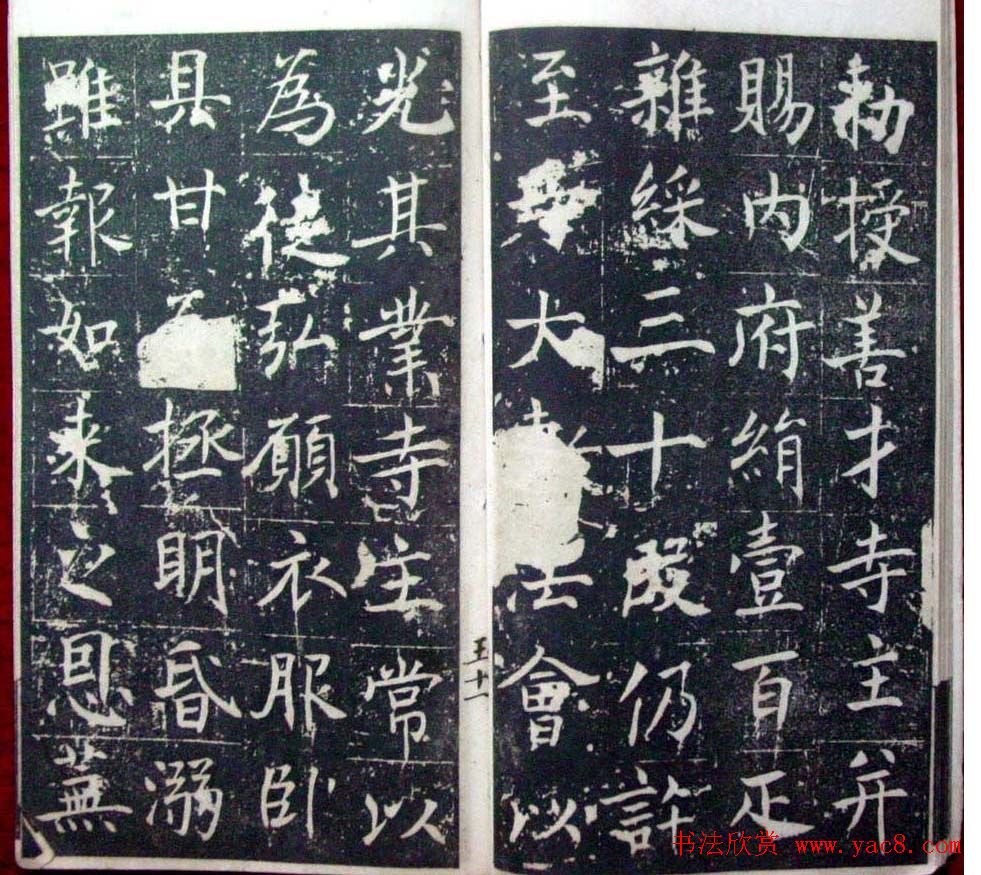 勅授善才寺主并
賜内府絹壹百疋
雜綵三十段仍許
至大法會以
光其業寺主常以
為徒弘願衣服卧
具甘拯明昏溺
雖報如来之恩蕪
王十一
书法欣赏 www.yac8.com